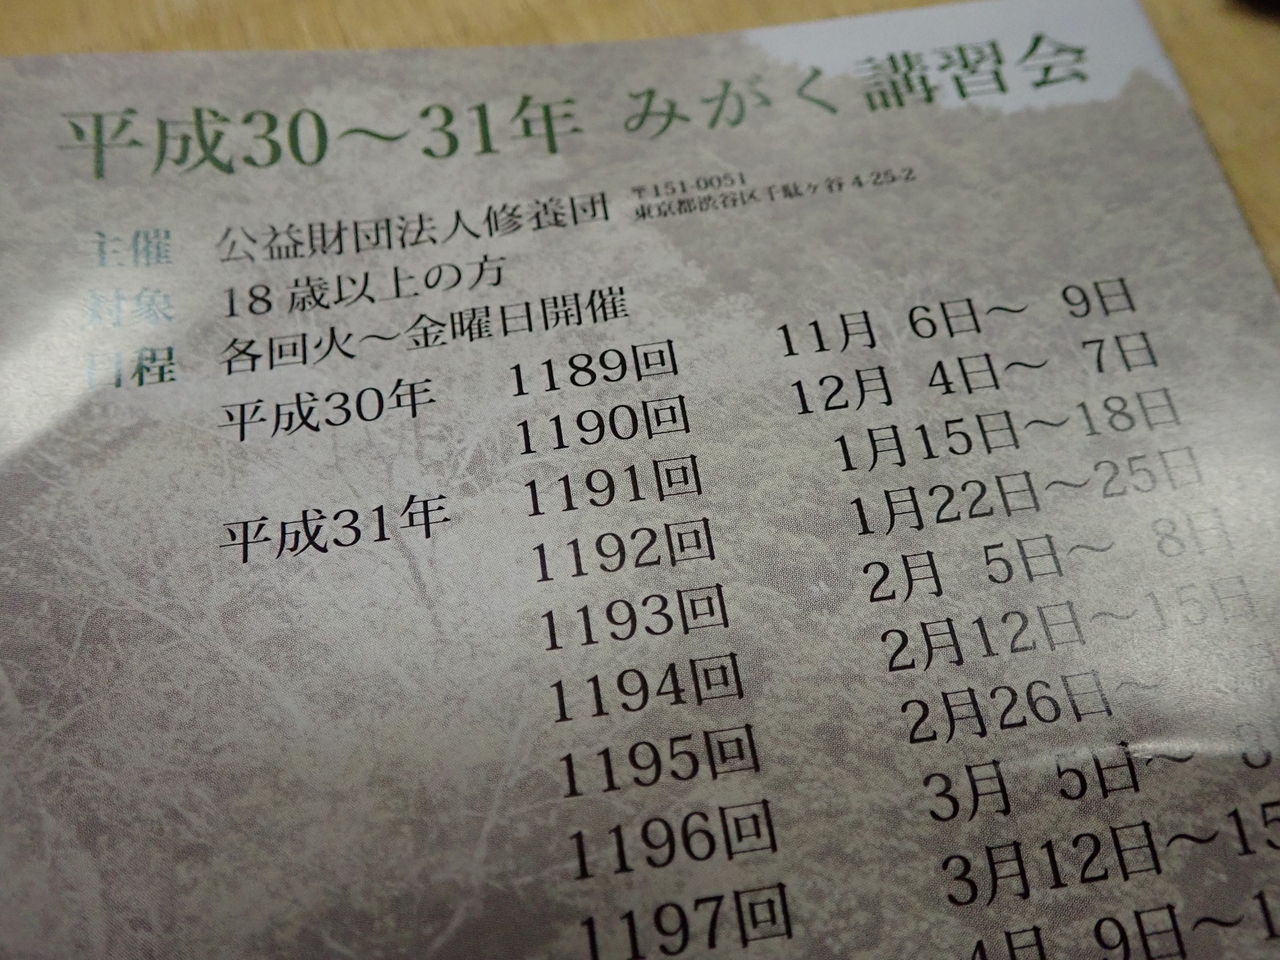 平成30〜31年 みがく講習会
主催 公益財団法人修養団 〒151-0051
東京都渋谷区千駄ヶ谷 4-25-2
対象 18 歳以上の方
日程 各回火〜金曜日開催
平成30年 1189回 11月 6日〜 9日
1190回 12月 4日〜 7日
平成31年 1191回 1月15日〜18日
1192回 1月22日〜25日
1193回 2月 5日〜 8日
1194回 2月12日〜15日
1195回 2月26日〜
1196回 3月 5日〜
1197回 3月12日〜15
4月 9日〜1